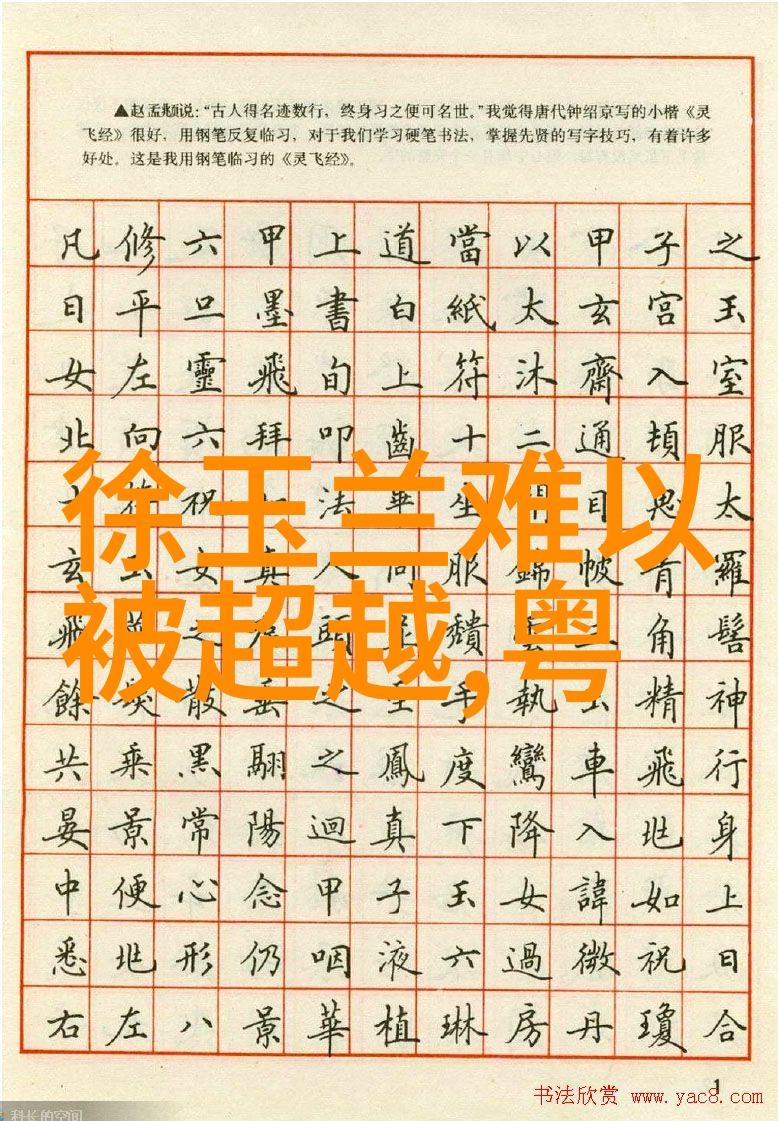 ▲赵孟頫说：“古人得名迹数行，终身习之便可名世。”我觉得唐代钟绍京写的小楷《灵
飞经》很好，用钢笔反复临习，对于我们学习硬笔书法，掌握先贤的写字技巧，有着许多
好处。这是我用钢笔临习的《灵飞经》。
凡修六甲上道當以甲子之
日平旦墨書白紙太玄宮玉
女左靈飛旬上符沐齋入室
北向六拜叩齒十二通頓服
祝法坐目思太
徐玉兰难以
玄玉女真人同服錦帔青羅
被超越,粤
飛之頭角髻
餘散垂之手執精神
共乘黑翮之鳳度鸞車飛行
晏景常陽迴真下降入兆身
中便心念甲子玉女諱如上
悉兆形仍咽液六過微祝日
右左八景華植琳房丹瓊合
1
书法欣赏 www.yac8.com
科长的空间